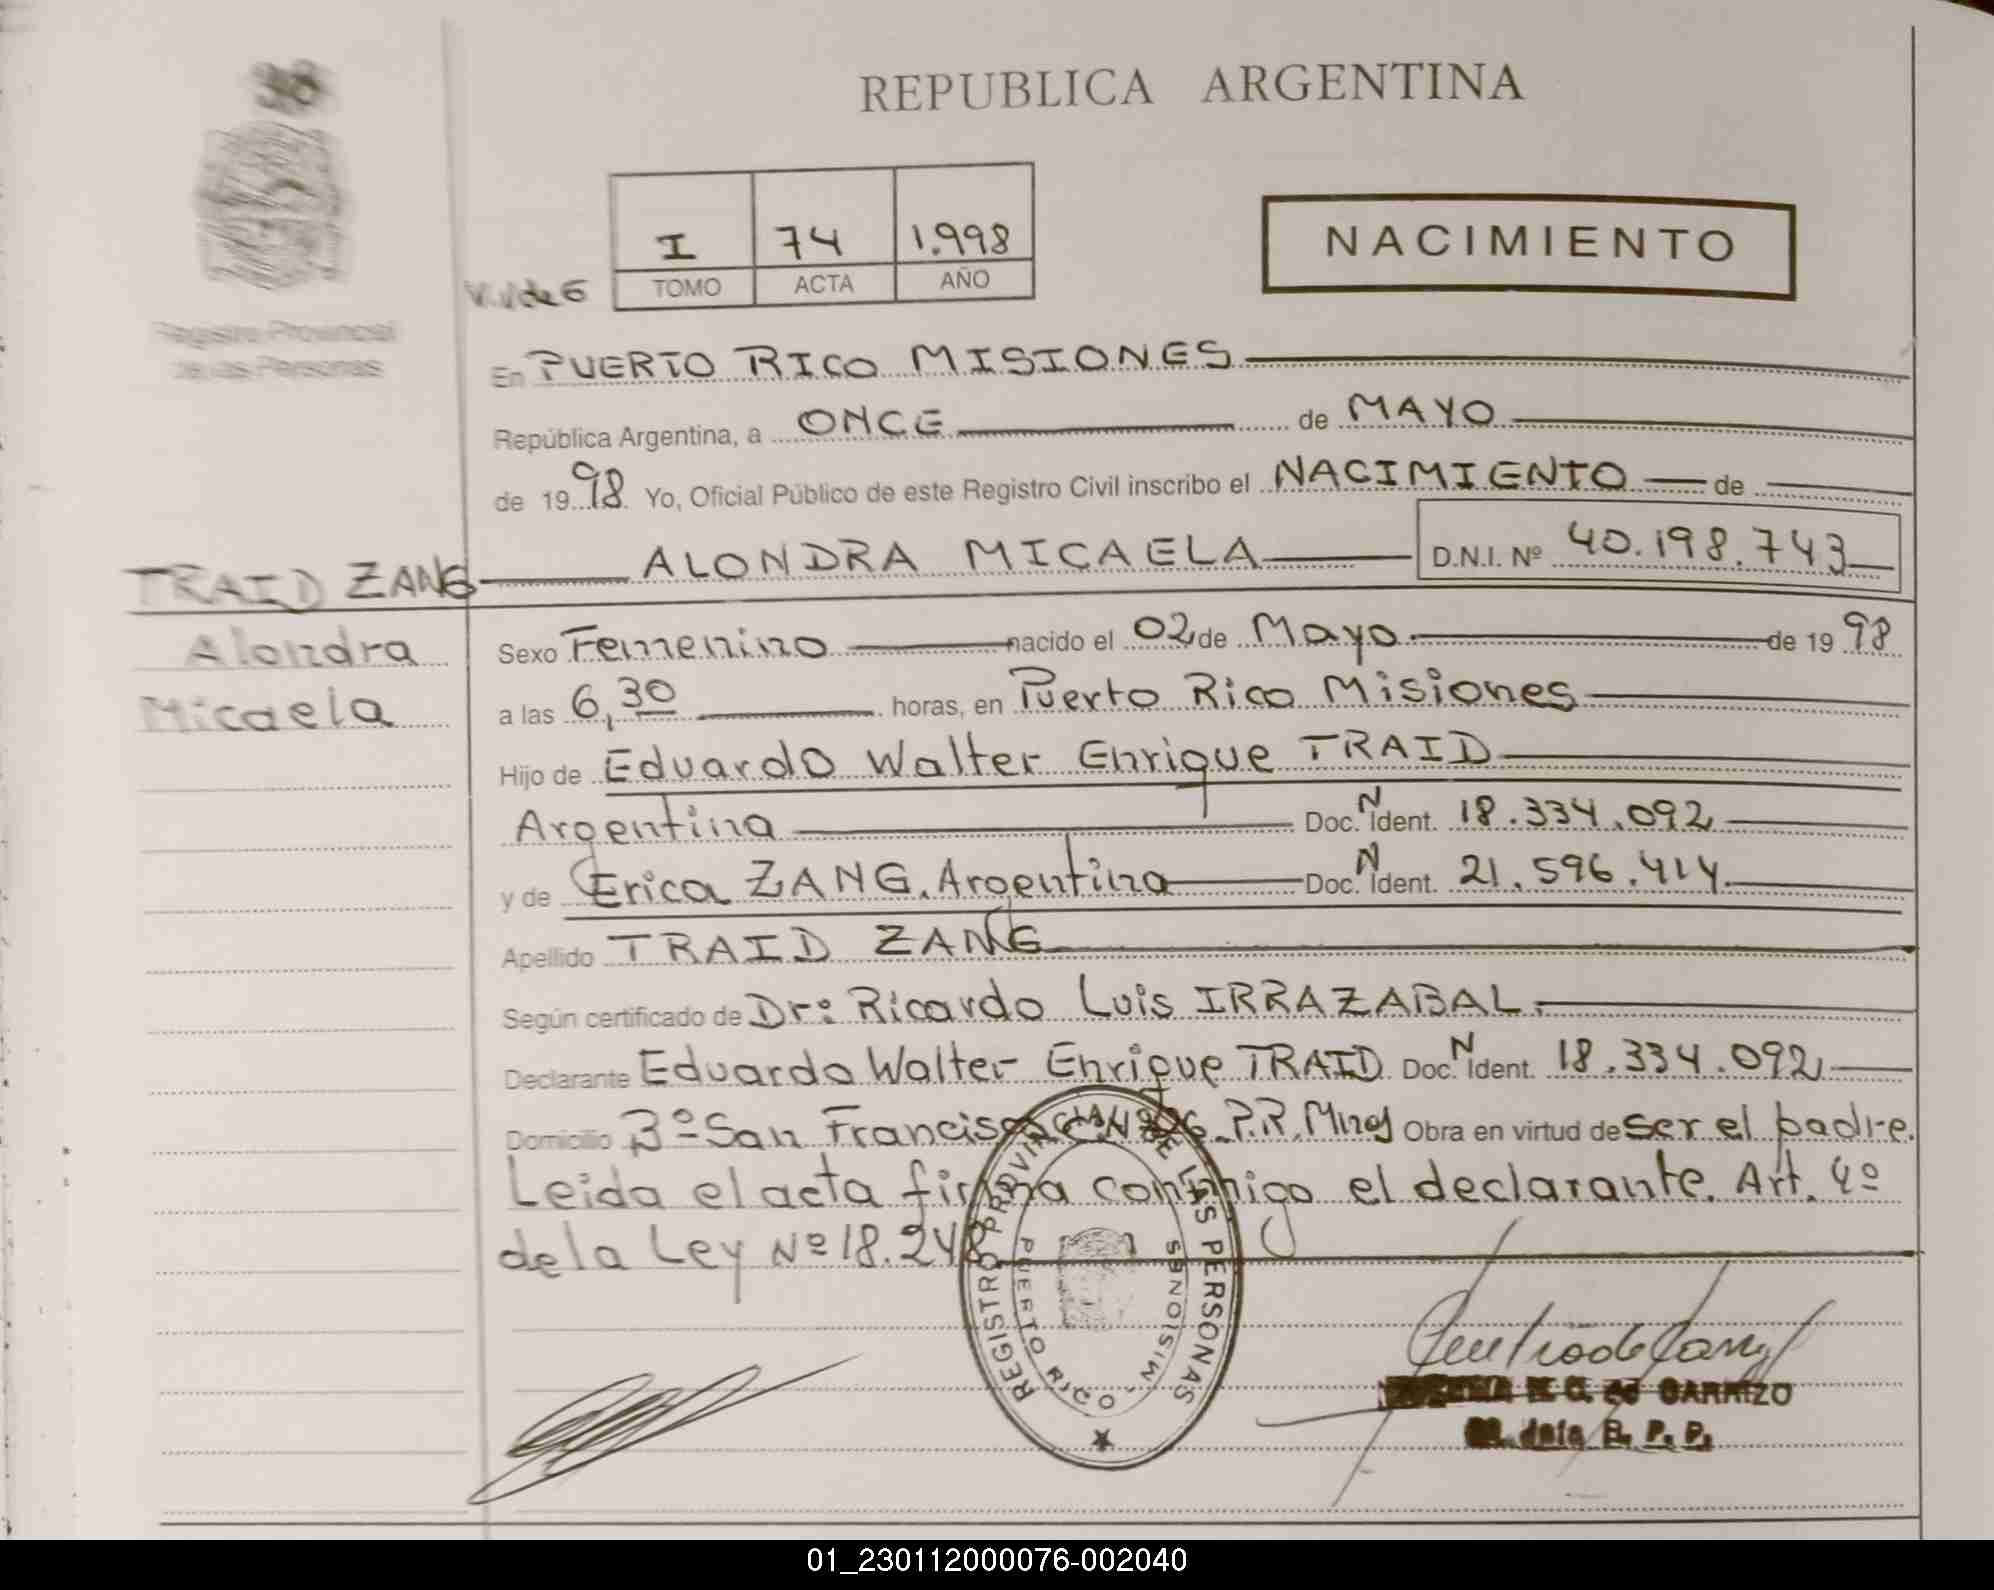 REPUBLICA ARGENTINA
I 74 1.998
TOMO ACTA AÑO
NACIMIENTO
Registro Provincial
de las Personas
En PUERTO RICO MISIONES
República Argentina, a ONCE de MAYO
de 1998 Yo, Oficial Público de este Registro Civil inscribo el NACIMIENTO de
TRAID ZANG ALONDRA MICAELA D.N.I. Nº 40.198.743
Alondra
Micaela
Sexo Femenino nacido el 02 de Mayo de 1998
a las 6,30 horas, en Puerto Rico Misiones
Hijo de Eduardo Walter Enrique TRAID
Argentina Doc. N Ident. 18.334.092
y de Erica ZANG. Argentina Doc. N Ident. 21.596.414
Apellido TRAID ZANG
Según certificado de Dr: Ricardo Luis IRRAZABAL.
Declarante Eduardo Walter Enrique TRAID Doc. N Ident. 18.334.092
Domicilio Bº San Francisco P.R. Mnes Obra en virtud de ser el padre.
Leida el acta firma conmigo el declarante. Art. 4º
de la Ley Nº 18.248
REGISTRO PROVINCIAL DE LAS PERSONAS
PUERTO RICO - MISIONES
de CARRIZO
R. P. P.
01_230112000076-002040